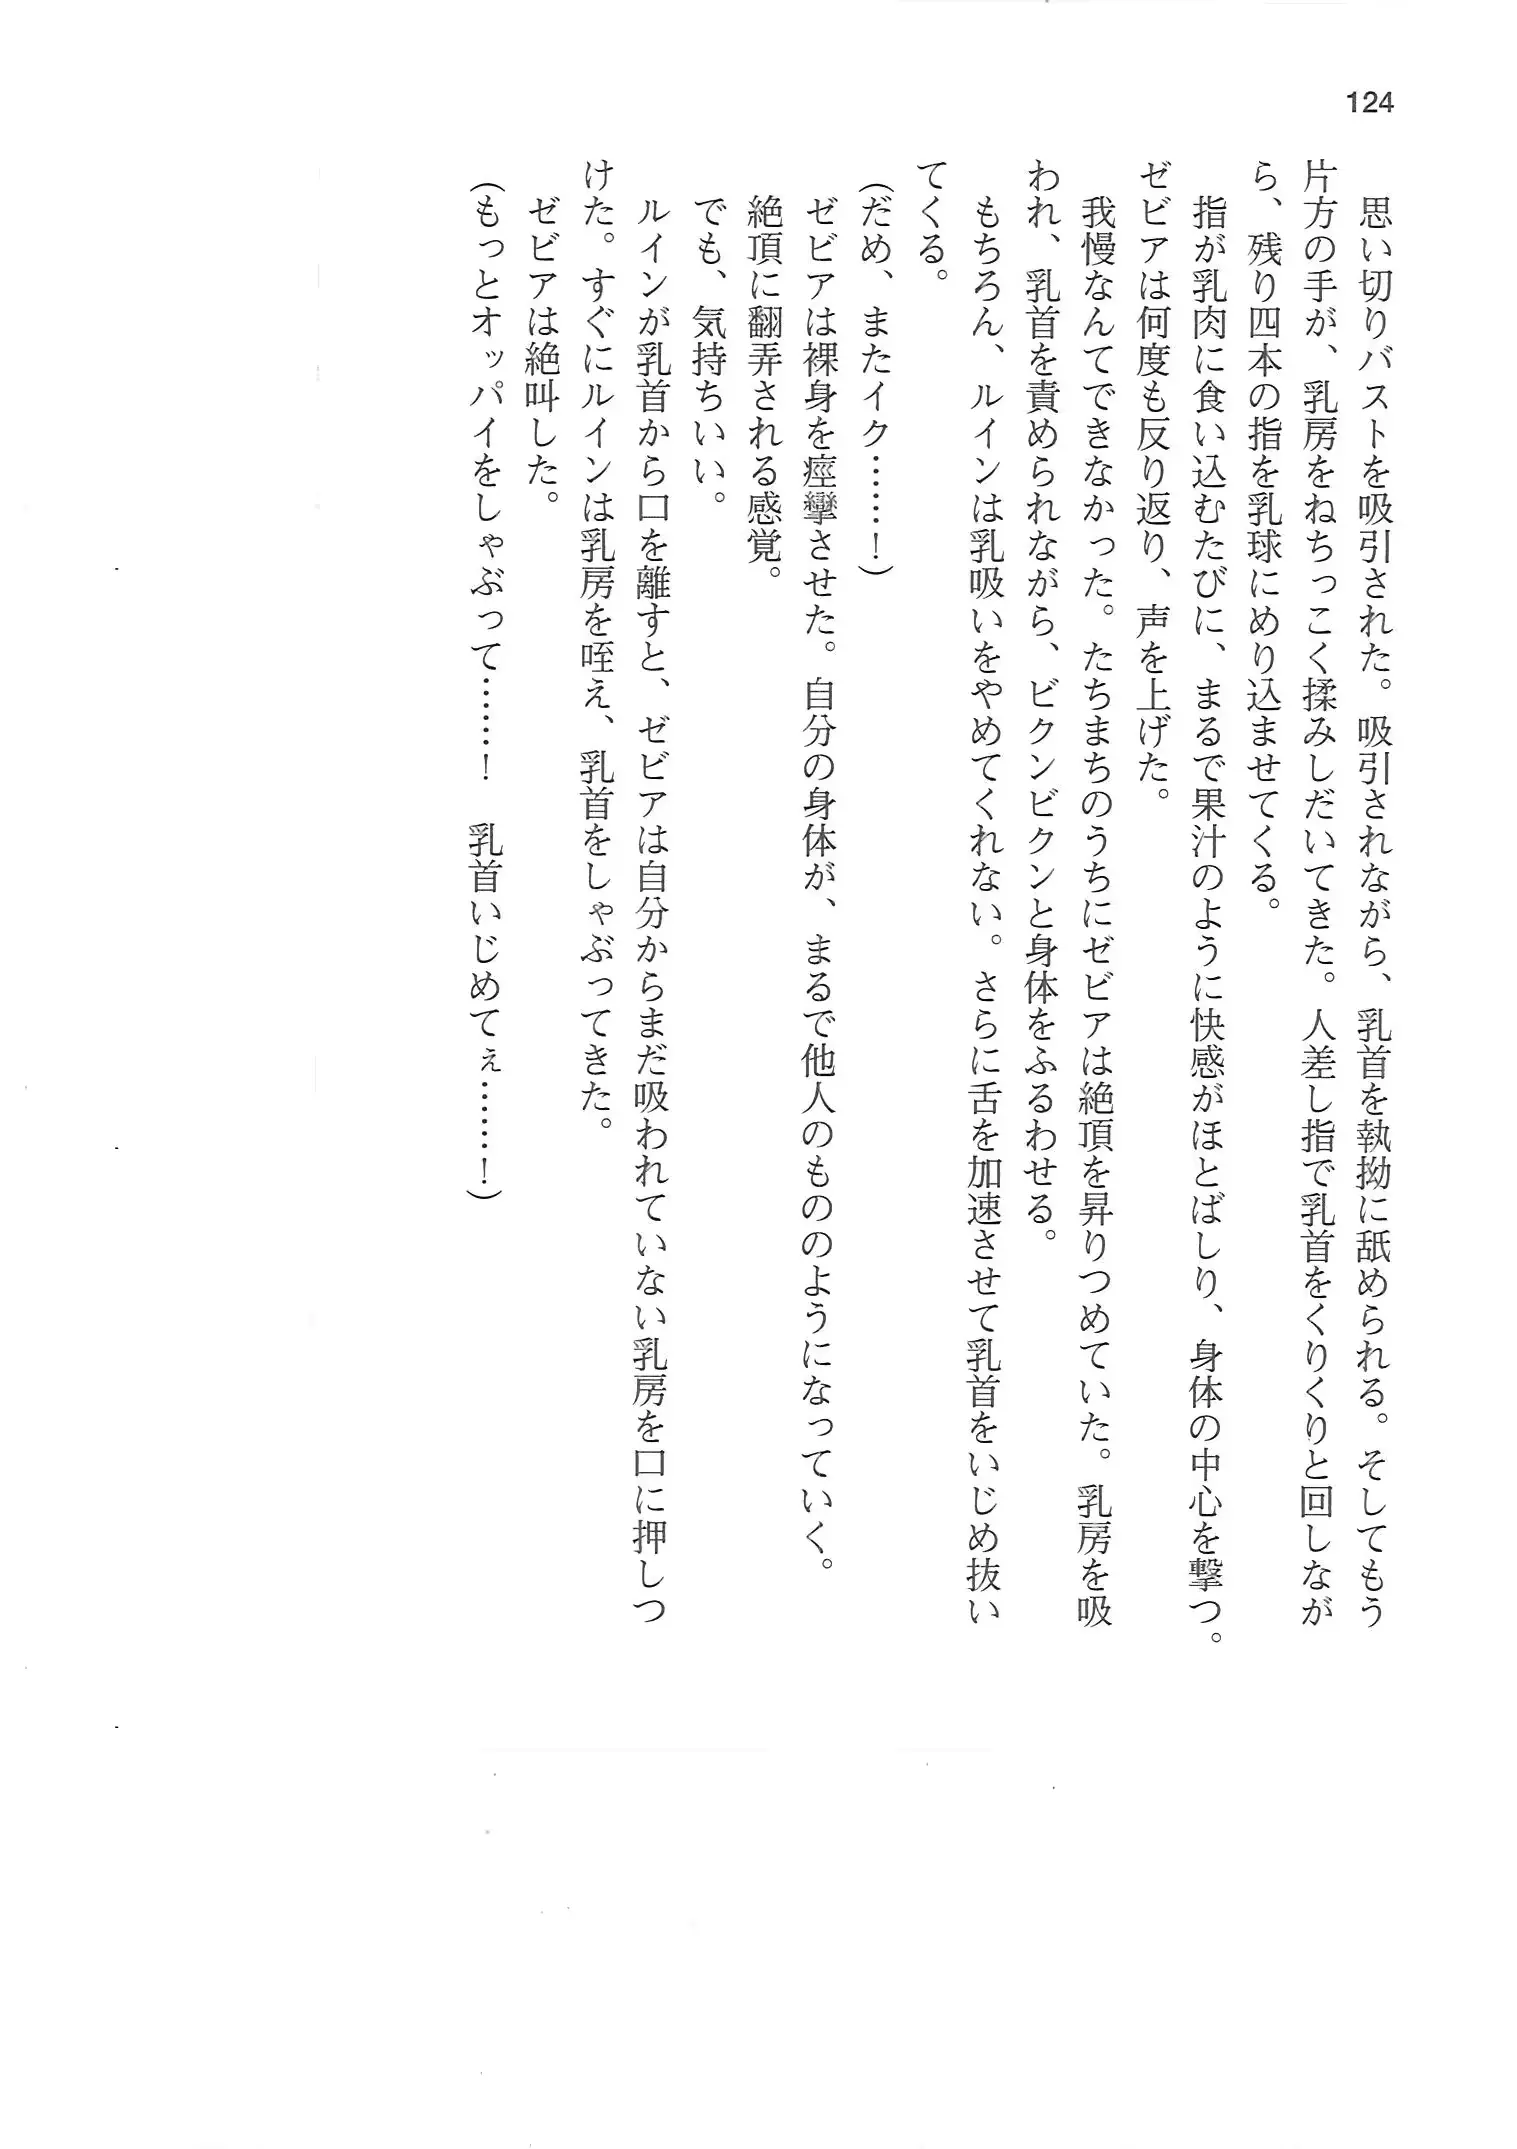 124
思い切りバストを吸引された。吸引されながら、乳首を執拗に舐められる。そしてもう
片方の手が、乳房をねちっこく揉みしだいてきた。人差し指で乳首をくりくりと回しなが
ら、残り四本の指を乳球にめり込ませてくる。
指が乳肉に食い込むたびに、まるで果汁のように快感がほとばしり、身体の中心を撃つ。
ゼビアは何度も反り返り、声を上げた。
我慢なんてできなかった。たちまちのうちにゼビアは絶頂を昇りつめていた。乳房を吸
われ、乳首を責められながら、ビクンビクンと身体をふるわせる。
もちろん、ルインは乳吸いをやめてくれない。さらに舌を加速させて乳首をいじめ抜い
てくる。
(だめ、またイク……！)
ゼビアは裸身を痙攣させた。自分の身体が、まるで他人のもののようになっていく。
絶頂に翻弄される感覚。
でも、気持ちいい。
ルインが乳首から口を離すと、ゼビアは自分からまだ吸われていない乳房を口に押しつ
けた。すぐにルインは乳房を咥え、乳首をしゃぶってきた。
ゼビアは絶叫した。
(もっとオッパイをしゃぶって……！　乳首いじめてぇ……！)